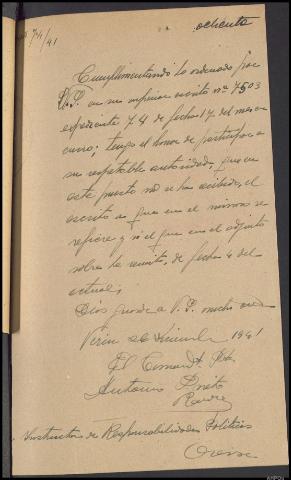 ochenta
74/41
Cumplimentando lo ordenado por
V.S. en su superior escrito nº 7503
expediente 74 de fecha 17 del mes en
curso; tengo el honor de participar a
su respetable autoridad, que en
este puesto no se ha recibido, el
escrito a que en el mismo se
refiere y si el que en el adjunto
sobre le remito, de fecha 4 del
actual;
Dios guarde a V.S. muchos
Verin 20 1941
El Comandte
Antonio Prieto
Instructor de Responsabilidades Políticas
Orense